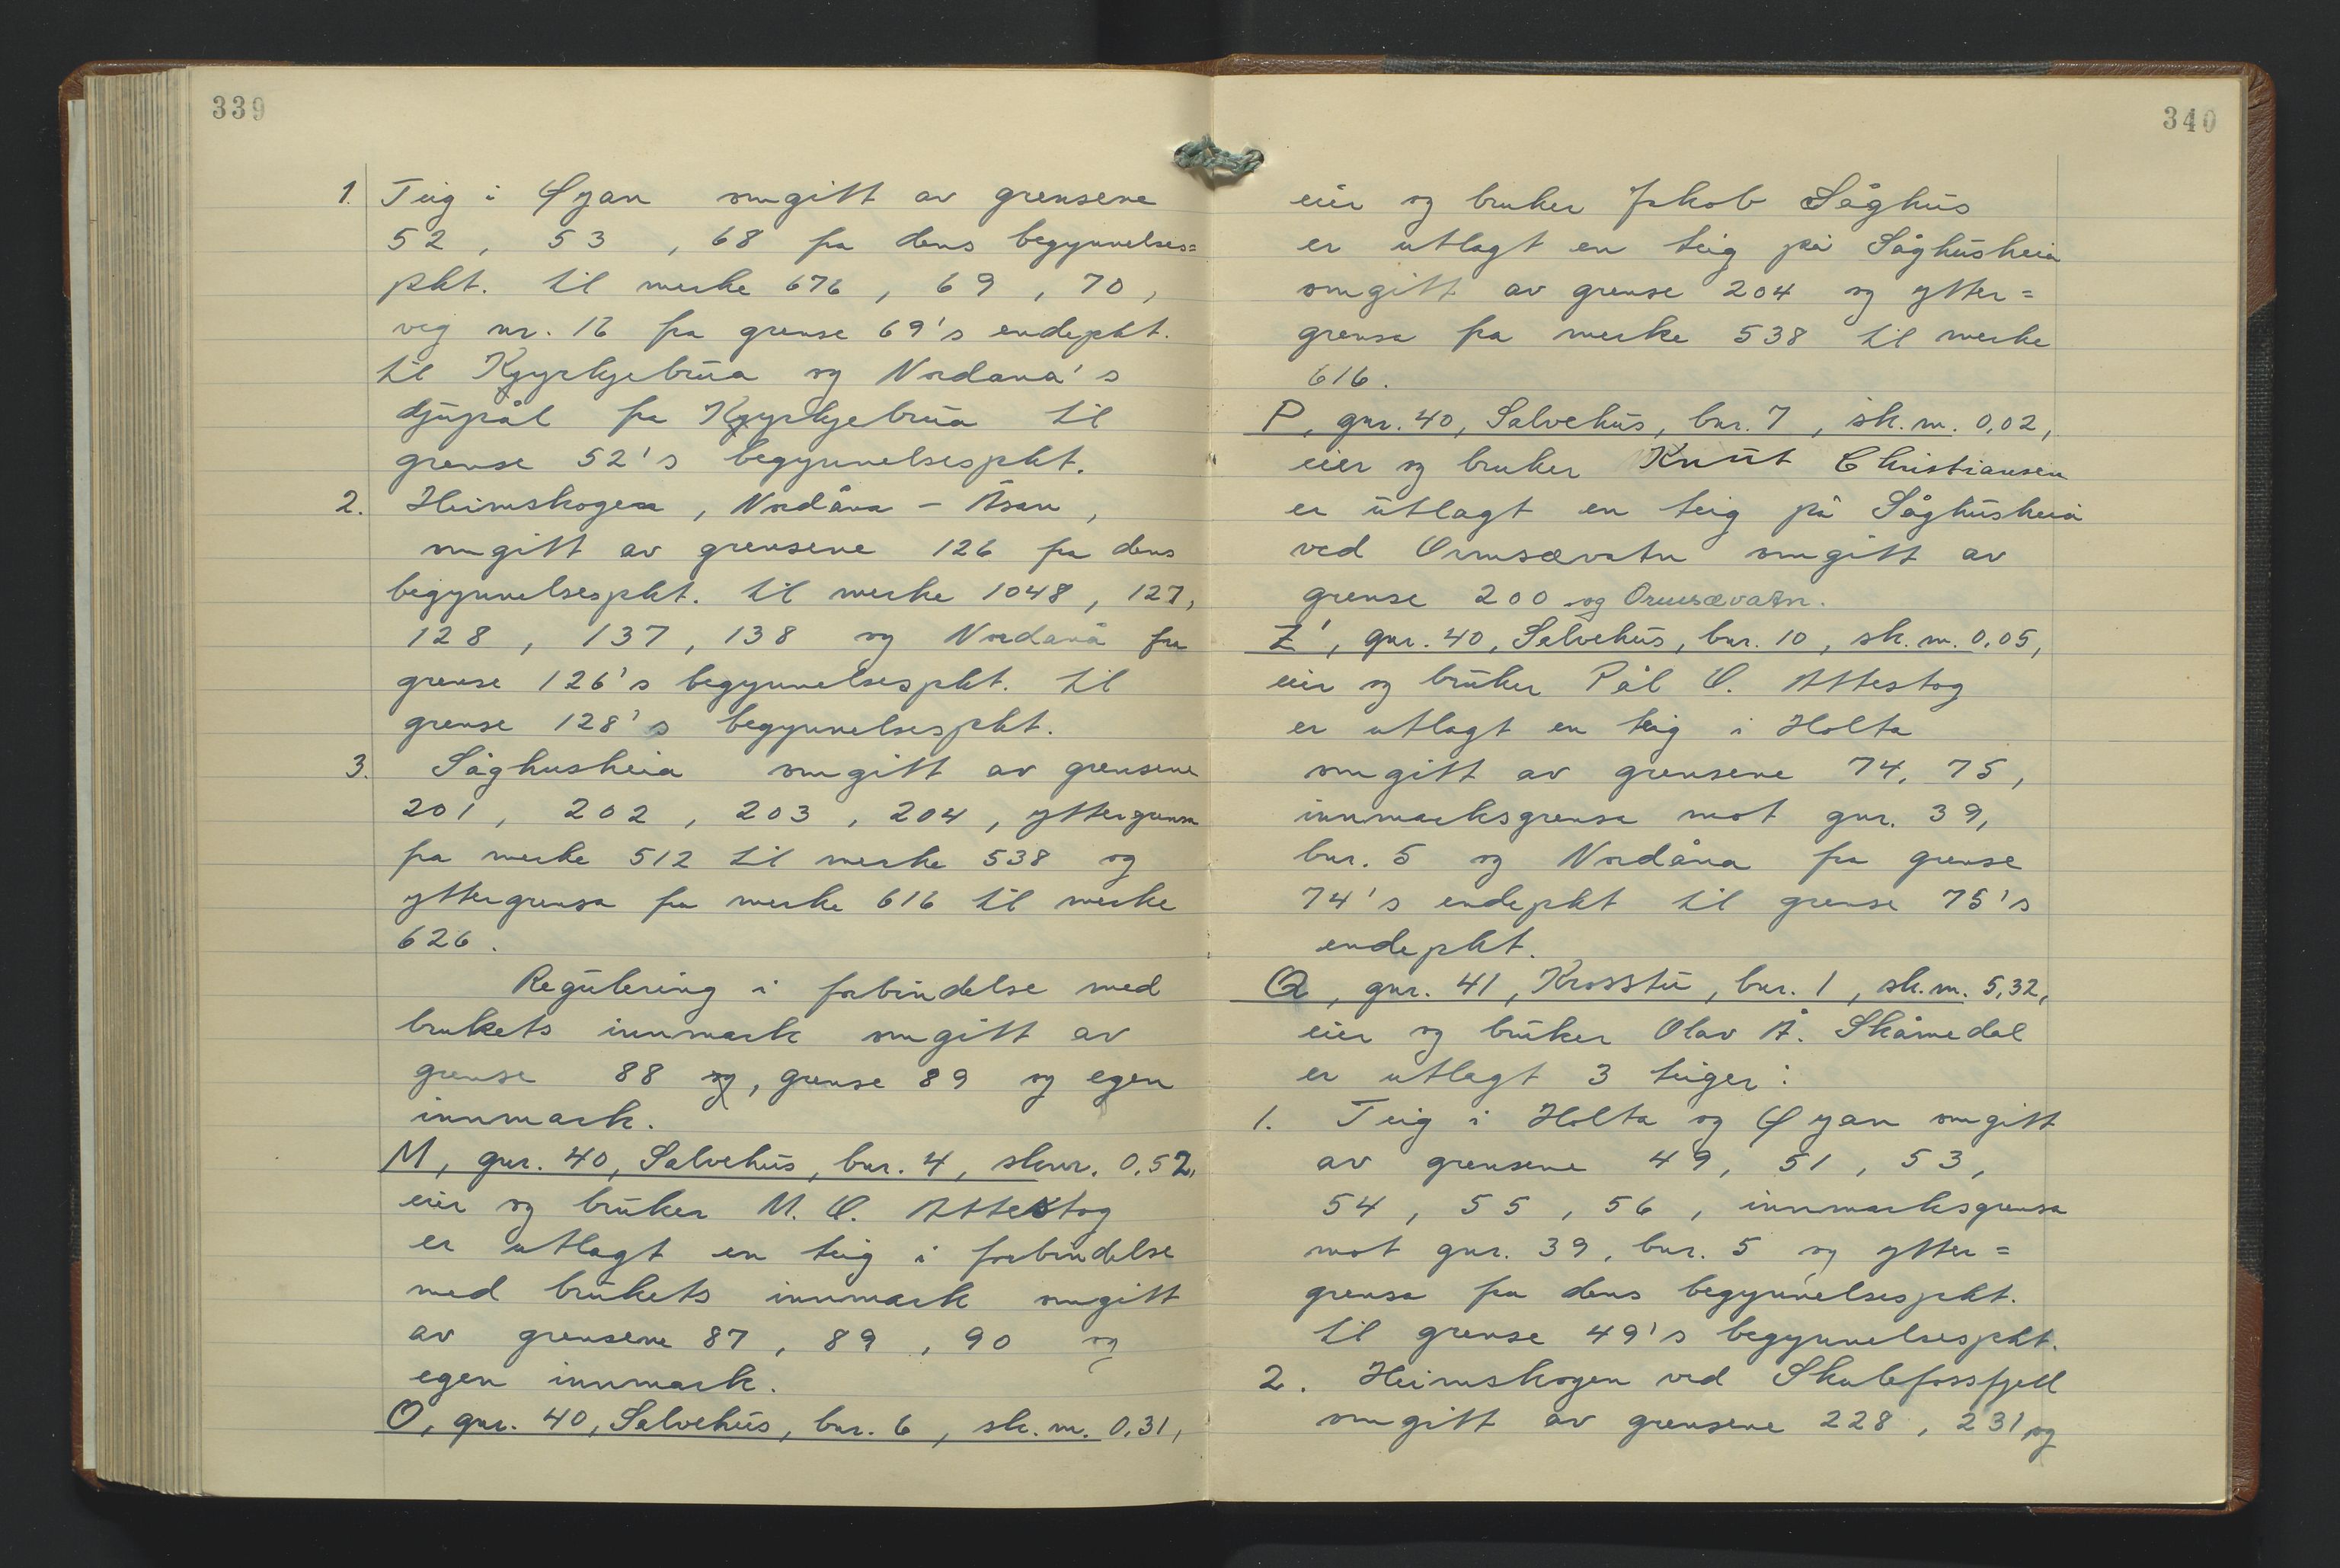 339
1. Teig i Øyan omgitt av grensene
52, 53, 68 fra dens begynnelses=
pkt. til merke 676, 69, 70,
veg nr. 16 fra grense 69's endepkt.
til Kyrkjebrua og Nordana's
djupål fra Kyrkjebrua til
grense 52's begynnelsespkt.
2. Heimskogen, Nordåna - Åsan,
omgitt av grensene 126 fra dens
begynnelsespkt. til merke 1048, 127,
128, 137, 138 og Nordanå fra
grense 126's begynnelsespkt. til
grense 128's begynnelsespkt.
3. Såghusheia omgitt av grensene
201, 202, 203, 204, yttergrensa
fra merke 512 til merke 538 og
yttergrensa fra merke 616 til merke
626.
Regulering i forbindelse med
brukets innmark omgitt av
grense 88 og, grense 89 og egen
innmark.
M, gnr. 40, Salvehus, bnr. 4, skm. 0,52,
eier og bruker M. O. Attestog
er utlagt en teig i forbindelse
med brukets innmark omgitt
av grensene 87, 89, 90 og
egen innmark.
O, gnr. 40, Salvehus, bnr. 6, sk.m. 0,31,
340
eier og bruker Jakob Såghus
er utlagt en teig på Såghusheia
omgitt av grense 204 og ytter=
grensa fra merke 538 til merke
616.
P, gnr. 40, Salvehus, bnr. 7, sk.m. 0,02,
eier og bruker Knut Christiansen
er utlagt en teig på Såghusheia
ved Ormsævatn omgitt av
grense 200 og Ormsævatn.
Z', gnr. 40, Salvehus, bnr. 10, sk.m. 0,05,
eier og bruker Pål O. Attestog
er utlagt en teig i Holta
omgitt av grensene 74, 75,
innmarksgrensa mot gnr. 39,
bnr. 5 og Nordåna fra grense
74's endepkt til grense 75's
endepkt.
Q, gnr. 41, Krosstu, bnr. 1, sk.m. 5,32,
eier og bruker Olav Å. Skåmedal
er utlagt 3 teiger:
1. Teig i Holta og Øyan omgitt
av grensene 49, 51, 53,
54, 55, 56, innmarksgrensa
mot gnr. 39, bnr. 5 og ytter=
grensa fra dens begynnelsespkt.
til grense 49's begynnelsespkt.
2. Heimskogen ved Skulefossfjell
omgitt av grensene 228, 231 og